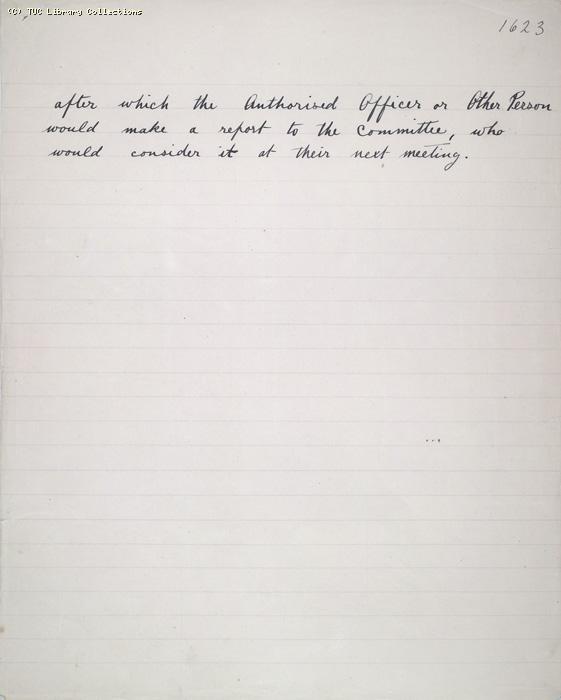 (C) TUC Library Collections
1623
after which the Authorised Officer or Other Person
would make a report to the Committee, who
would consider it at their next meeting.